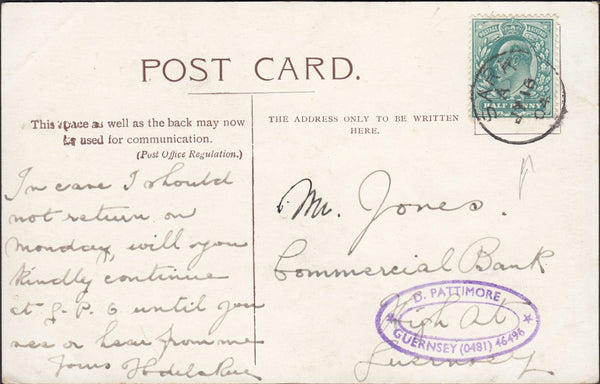 POST CARD.
HALFPENNY
This space as well as the back may now
be used for communication.
(Post Office Regulation.)
THE ADDRESS ONLY TO BE WRITTEN
HERE.
In case I should
not return on
Monday, will you
kindly continue
at J. P. G until you
see or hear from me
Yours
Mr. Jones.
Commercial Bank
High St
Guernsey
D. PATTIMORE
GUERNSEY (0481) 46496